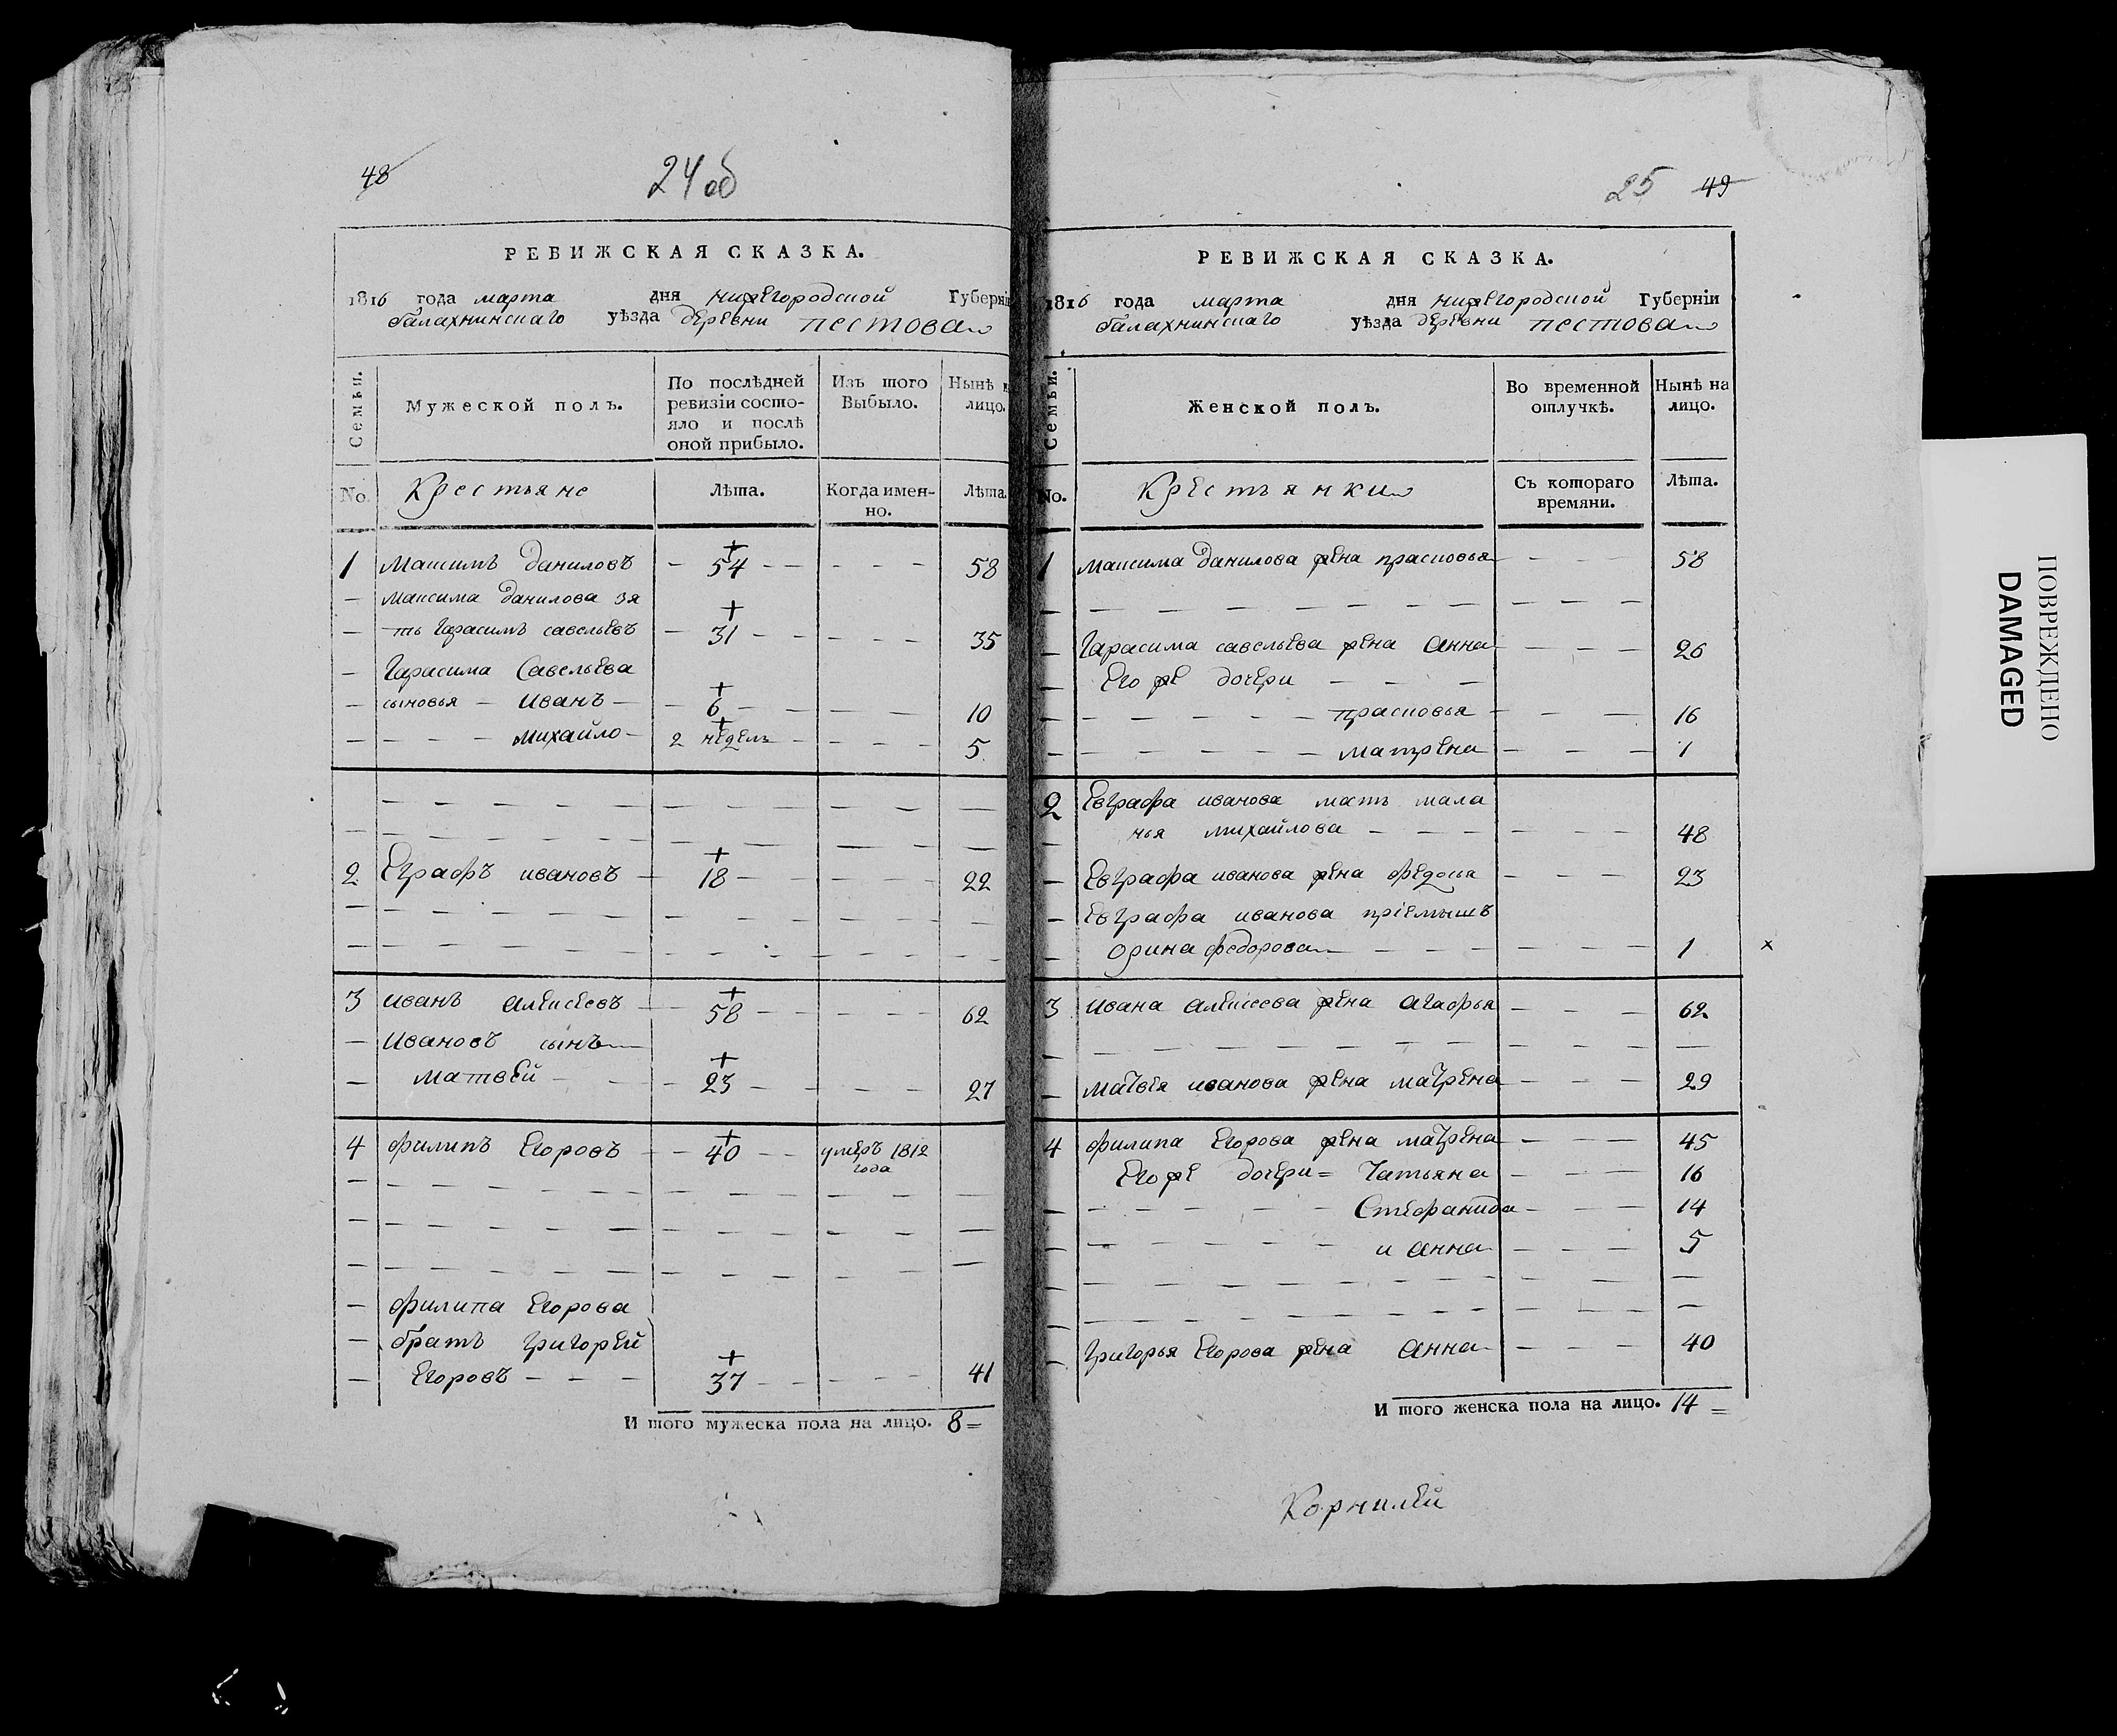 48
24об
РЕВИЖСКАЯ СКАЗКА.
1816 года марта дня нижегородской Губерніи
балахнинскаго уѣзда деревни пестова
Семьи.
Мужеской полъ.
По послѣдней
ревизіи состо-
яло и послѣ
оной прибыло.
Изъ того
Выбыло.
Нынѣ н
лицо.
No.
Крестьяне
Лѣта.
Когда имен-
но.
Лѣта.
1 Максимъ Даниловъ - 54 - - - - - 58
- максима Данилова зя
- ть Гарасимъ савельевъ - 31 - - - - - 35
- Гарасима Савельева
- сыновья - Иванъ - - 6 - - - 10
- - - - михайло - 2 недель - - - - 5
2 Еграфъ ивановъ - 18 - - - - - 22
3 иванъ алексеевъ - 58 - - - - - 62
- Ивановъ сынъ
- матвей - - - 23 - - - - 27
4 филипъ Егоровъ - - 40 - - умеръ 1812
года
- филипа Егорова
- братъ григорей
- Егоровъ - - - 37 - - - - - 41
И того мужеска пола на лицо. 8=
25 49
РЕВИЖСКАЯ СКАЗКА.
1816 года марта дня нижегородской Губерніи
балахнинскаго уѣзда деревни пестова
Семьи.
Женской полъ.
Во временной
отлучкѣ.
Нынѣ на
лицо.
No.
Крестьянки
Съ котораго
времяни.
Лѣта.
1 максима Данилова жена прасковья - - - 58
- Гарасима савельева жена Анна - - - 26
- Его же дочери - - -
- - - - - - прасковья - - - 16
- - - - - - матрена - - - 1
2 Евграфа иванова мать мала
нья михайлова - - - - - - 48
- Евграфа иванова жена федосья - - - 23
- Евграфа иванова пріемышъ
- орина федорова - - - - - - 1 х
3 Ивана Алексеева жена агафья - - - 62
- матвея иванова жена матрена - - - 29
4 филипа Егорова жена матрена - - - 45
Его же дочери = Татьяна - - - 16
- - - - - - Стефанида - - - 14
- - - - - - и анна - - - 5
- Григорья Егорова жена Анна - - - 40
И того женска пола на лицо. 14 =
Корнилей
ПОВРЕЖДЕНО
DAMAGED